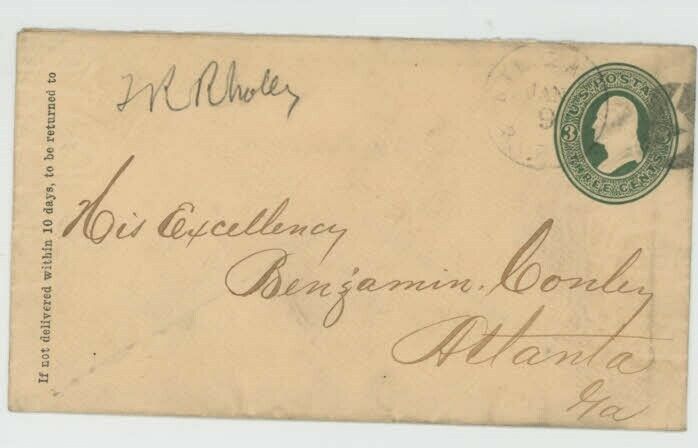 If not delivered within 10 days, to be returned to
U.S. POSTAGE
3
THREE CENTS
His Excellency
Benjamin. Conley
Atlanta
Ga